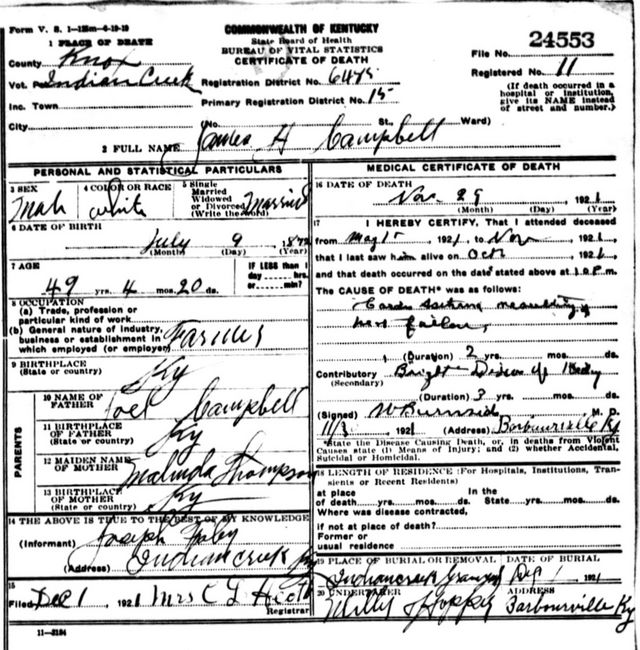 Form V. S. 1-125m-4-19-19
COMMONWEALTH OF KENTUCKY
State Board of Health
BUREAU OF VITAL STATISTICS
CERTIFICATE OF DEATH
1 PLACE OF DEATH
County Knox
Vot. Indian Creek
Inc. Town
City
Registration District No. 6475
Primary Registration District No. 15
(No. St., Ward)
File No. 24553
Registered No. 11
(If death occurred in a
hospital or institution,
give its NAME instead
of street and number.)
2 FULL NAME James H Campbell
PERSONAL AND STATISTICAL PARTICULARS
3 SEX
Male
4 COLOR OR RACE
white
5 Single
Married
Widowed
or Divorced
(Write the word)
Married
6 DATE OF BIRTH
July 9 1872
(Month) (Day) (Year)
7 AGE
49 yrs. 4 mos. 20 ds.
IF LESS than 1
day hrs.
or min.?
8 OCCUPATION
(a) Trade, profession or
particular kind of work
(b) General nature of industry,
business or establishment in
which employed (or employer)
Farmer
9 BIRTHPLACE
(State or country) Ky
PARENTS
10 NAME OF
FATHER Joel Campbell
11 BIRTHPLACE
OF FATHER
(State or country) Ky
12 MAIDEN NAME
OF MOTHER Malinda Thompson
13 BIRTHPLACE
OF MOTHER
(State or country) Ky
14 THE ABOVE IS TRUE TO THE BEST OF MY KNOWLEDGE
(Informant) Joseph
(Address) Indiancreek Ky
15
Filed Dec 1 1921 Mrs C
Registrar
11-3184
MEDICAL CERTIFICATE OF DEATH
16 DATE OF DEATH
Nov 29 1921
(Month) (Day) (Year)
17 I HEREBY CERTIFY, That I attended deceased
from May 15 1921, to Nov 1921,
that I last saw him alive on Oct 1921,
and that death occurred on the date stated above at 10 P.m.
The CAUSE OF DEATH* was as follows:
(Duration) 2 yrs. mos. ds.
Contributory Bright Disease of
(Secondary)
(Duration) 3 yrs. mos. ds.
(Signed) W Burnside M. D.
1921 (Address) Barbourville Ky
*State the Disease Causing Death, or, in deaths from Violent
Causes state (1) Means of Injury; and (2) whether Accidental,
Suicidal or Homicidal.
18 LENGTH OF RESIDENCE (For Hospitals, Institutions, Tran-
sients or Recent Residents)
at place In the
of death yrs. mos. ds. State yrs. mos. ds.
Where was disease contracted,
if not at place of death?
Former or
usual residence
19 PLACE OF BURIAL OR REMOVAL
Indiancreek
DATE OF BURIAL
1921
20 UNDERTAKER
Hopper
ADDRESS
Barbourville Ky